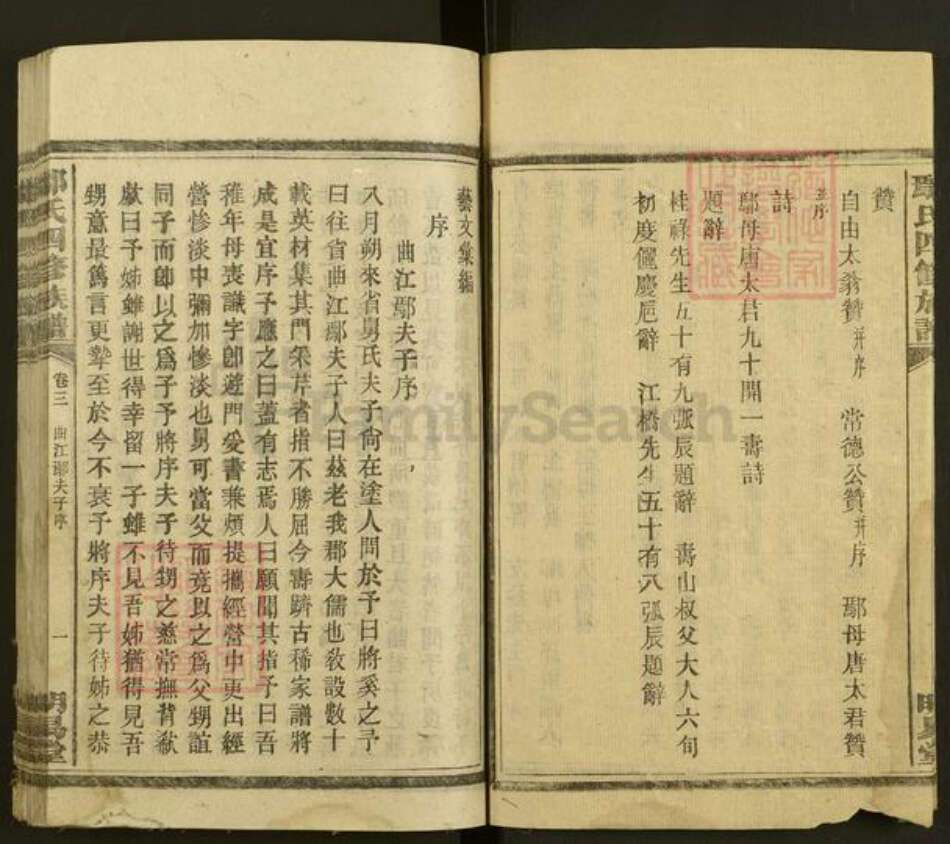 贊
自由太翁贊并序　常德公贊并序　鄢母唐太君贊
並序
詩
鄢母唐太君九十開一壽詩
題辭
桂祿先生五十有九弧辰題辭　壽山叔父大人六旬
初度儷慶巵辭　江橋先生五十有八弧辰題辭
氏四修族譜
藝文彙編
序
曲江鄢夫子序
八月朔來省舅氏夫子尙在塗人問於予曰將奚之予
曰往省曲江鄢夫子人曰茲老我郡大儒也敎設數十
載英材集其門采芹者指不勝屈今壽躋古稀家譜將
成是宜序子應之曰蓋有志焉人曰願聞其指予曰吾
稚年母喪識字卽遊門受書兼煩提攜經營中更出經
營慘淡中彌加慘淡也舅可當父而竟以之爲父甥誼
同子而卽以之爲子予將序夫子待甥之慈常撫背欷
歔曰予姊雖謝世得幸留一子雖不見吾姊猶得見吾
甥意最篤言更摯至於今不衰予將序夫子待姊之恭
氏四修族譜
卷三
曲江鄢夫子序
一
FamilySearch